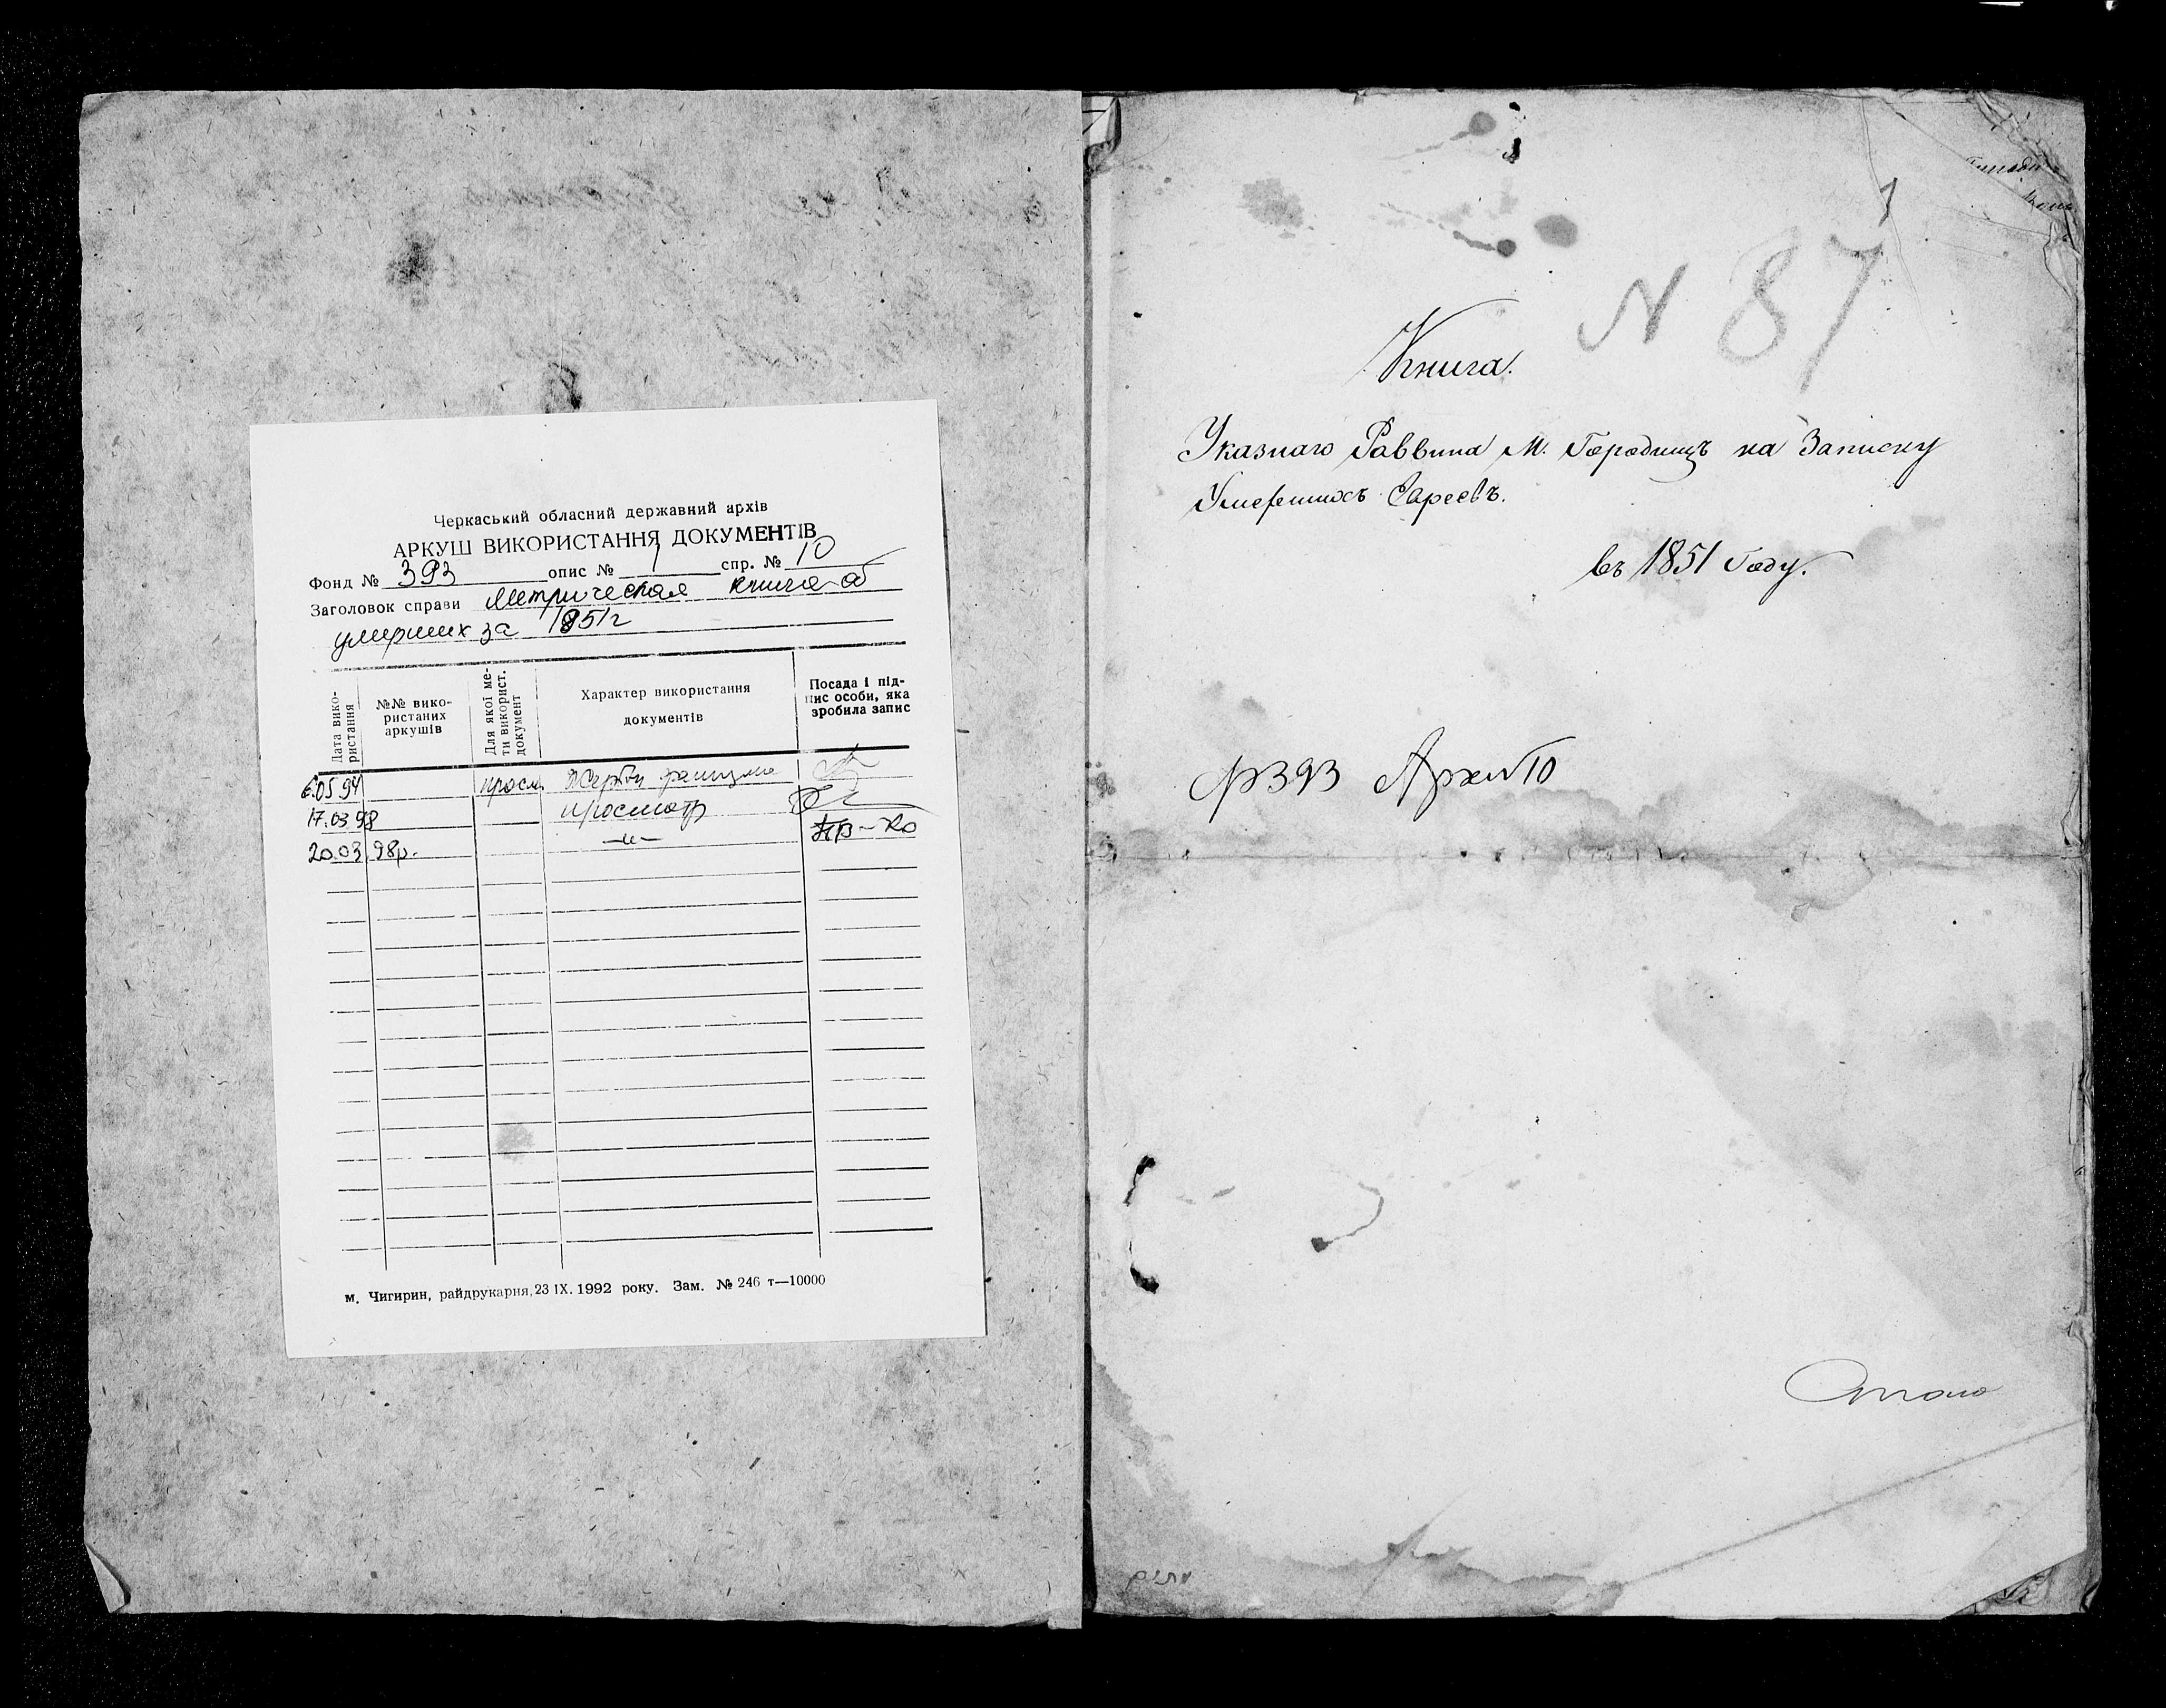 Черкаський обласний державний архів
АРКУШ ВИКОРИСТАННЯ ДОКУМЕНТІВ
Фонд № 393 опис № 1 спр. № 10
Заголовок справи Метрическая книга об
умерших за 1851 г
Дата вико-
ристання
№№ вико-
ристаних
аркушів
Для якої ме-
ти використ.
документ
Характер використання
документів
Посада і під-
пис особи, яка
зробила запис
6.05 94 просм. Жертвы фашизма
17.03 98 просмотр
20.03. 98р. —"—
м. Чигирин, райдрукарня, 23 IX. 1992 року. Зам. № 246 т—10000
1
N 87
Книга.
Указнаго Раввина М. Городищъ на Записку
Умершихъ Евреевъ.
въ 1851 Году.
ф 393 Арх №10